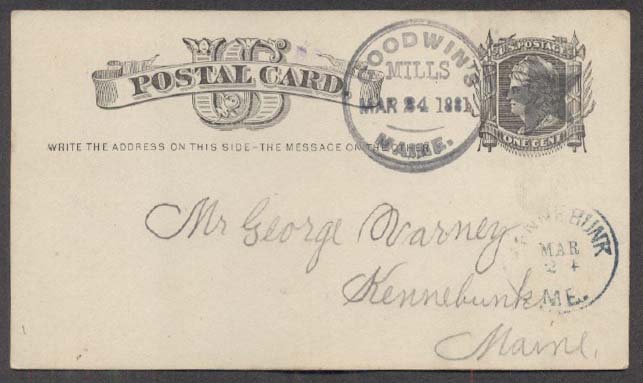 US
POSTAL CARD.
GOODWIN'S
MILLS
MAR 24 1881
MAINE.
U.S. POSTAGE
ONE CENT
WRITE THE ADDRESS ON THIS SIDE-THE MESSAGE ON THE OTHER
Mr George Varney
Kennebunk
Maine.
KENNEBUNK
MAR
24
ME.